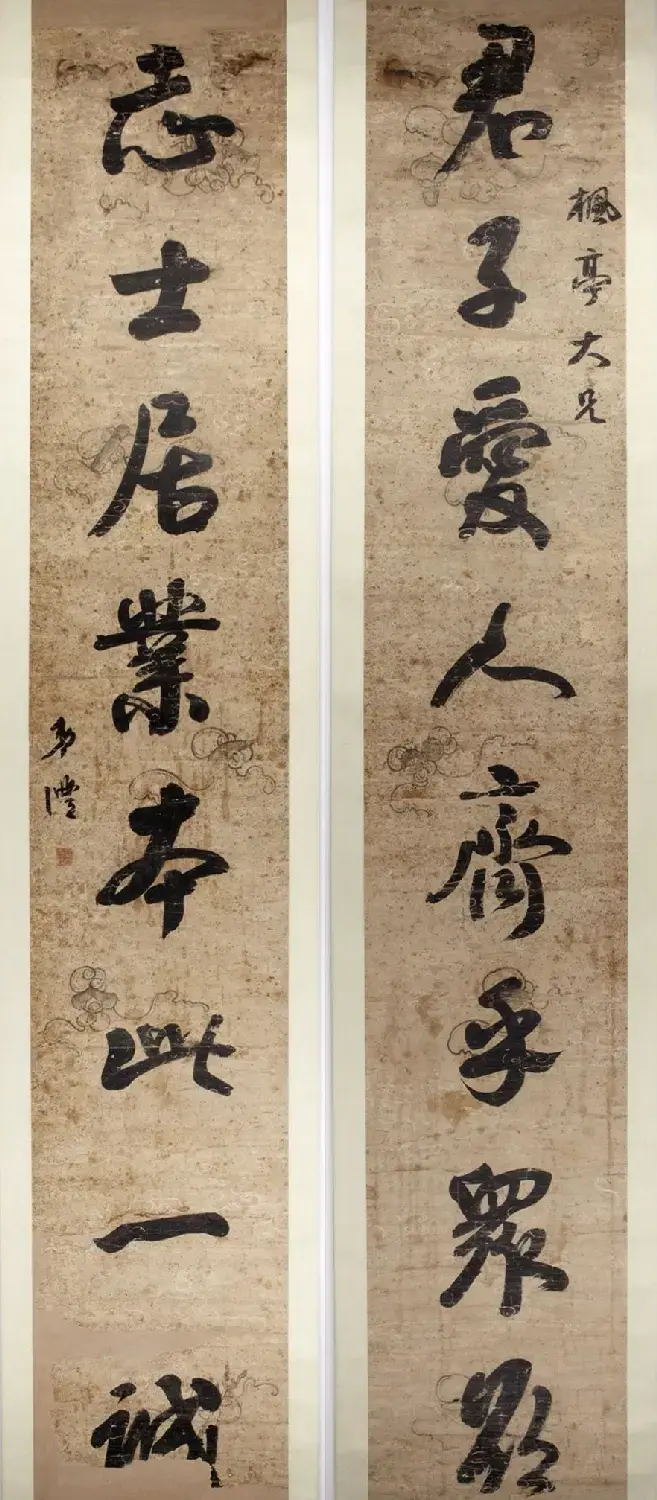 君子愛人齊乎眾
楓亭大兄
志士居業本此一誠
澧